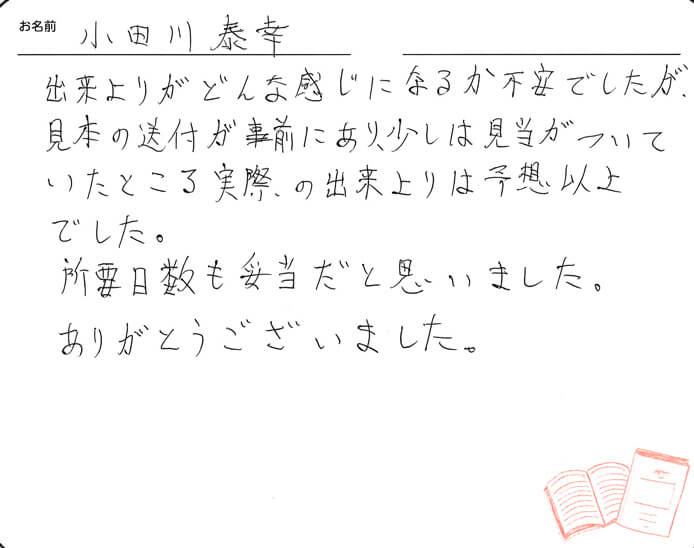 お名前 小田川 泰幸
出来よりがどんな感じになるか不安でしたが、
見本の送付が事前にあり、少しは見当がついて
いたところ実際、の出来よりは予想以上
でした。
所要日数も妥当だと思いました。
ありがとうございました。